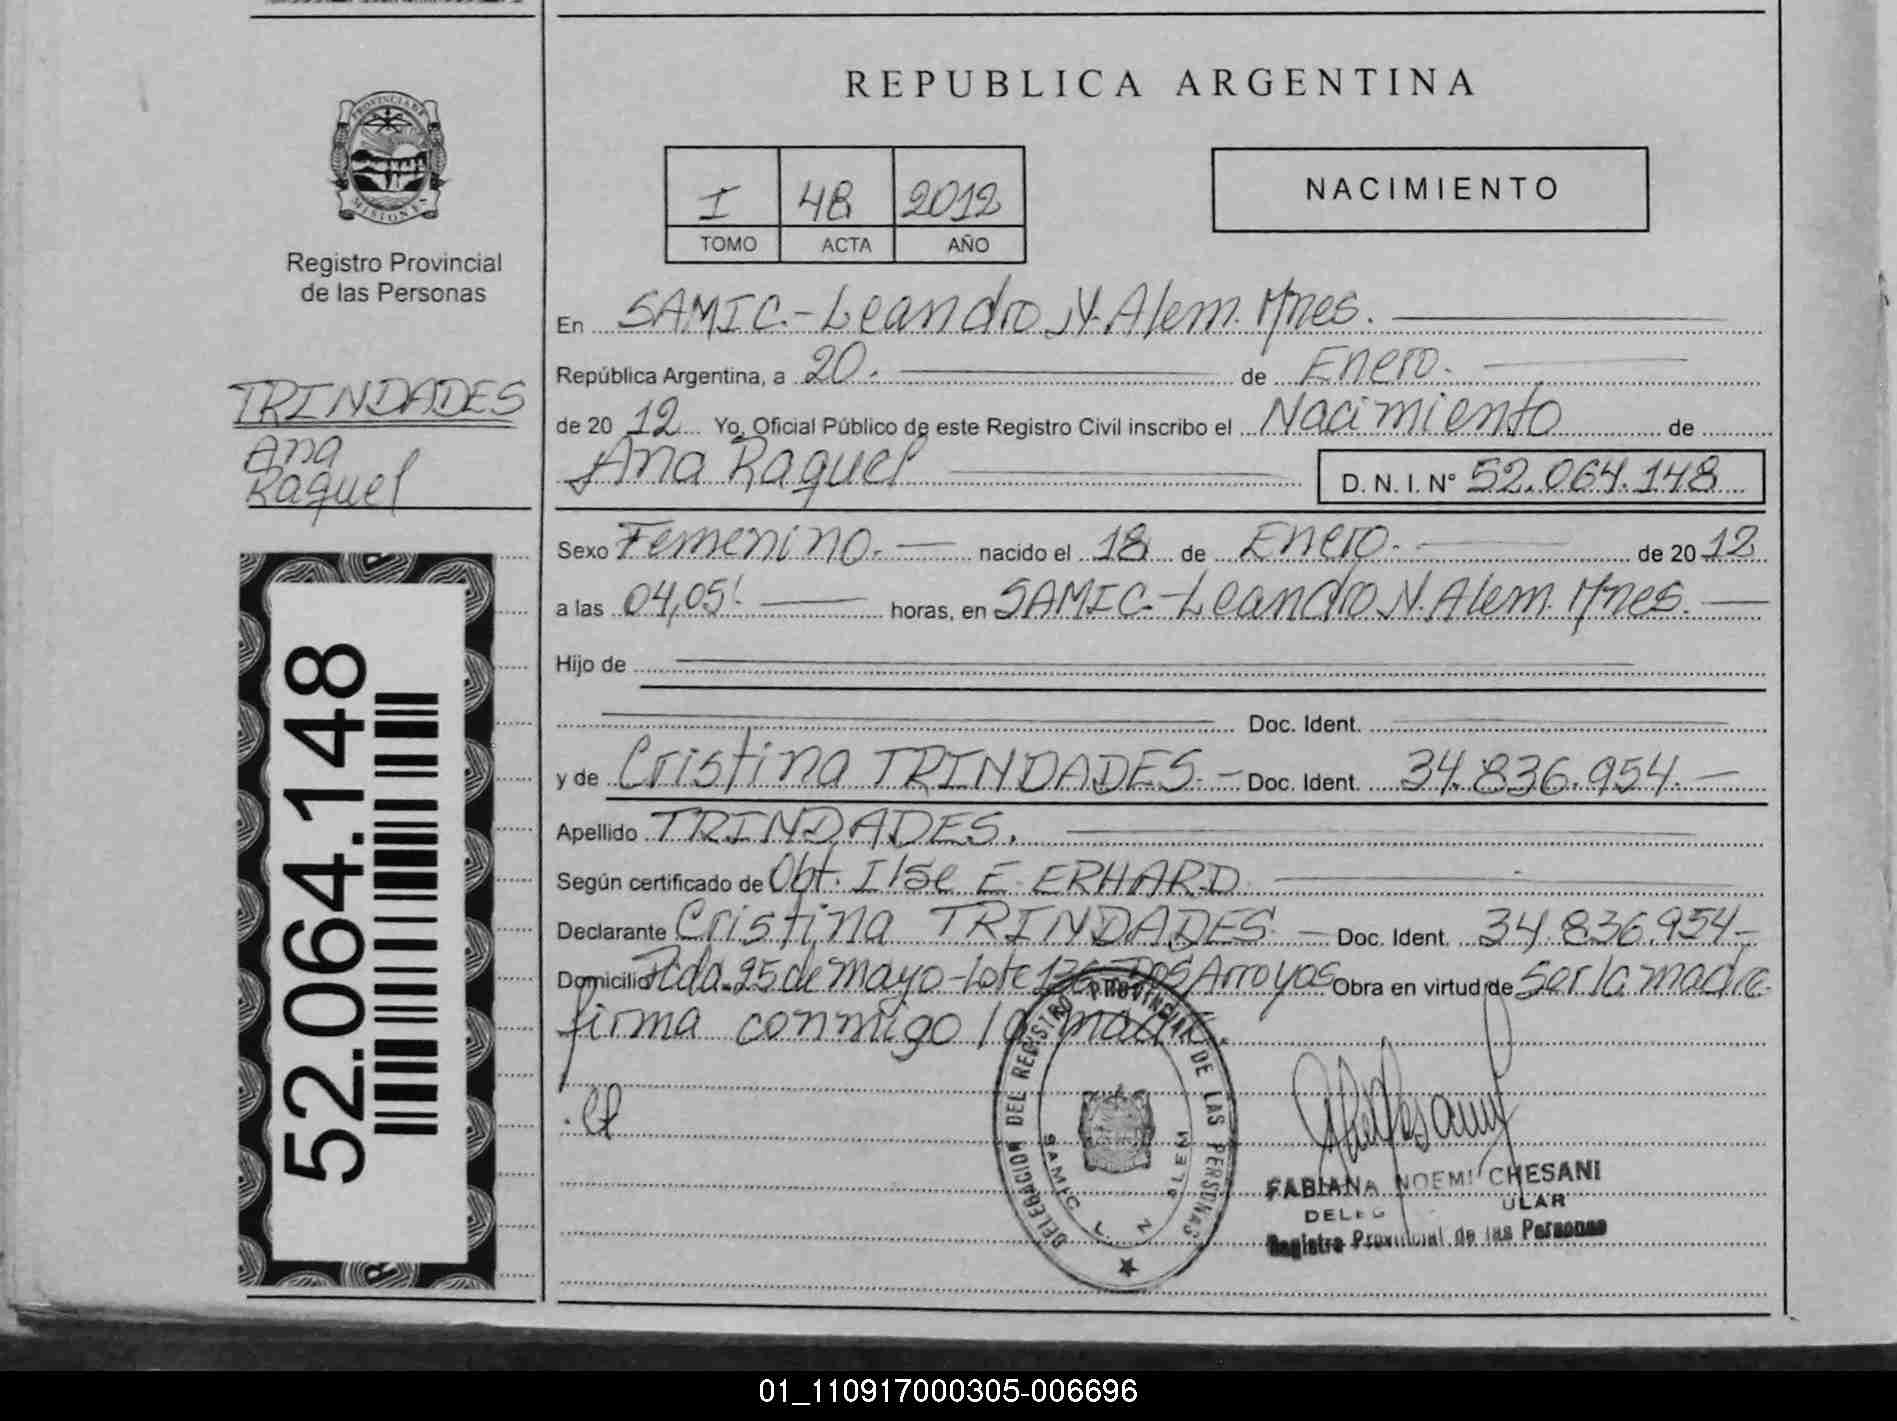 REPUBLICA ARGENTINA
PROVINCIA DE MISIONES
Registro Provincial
de las Personas
I 48 2012
TOMO ACTA AÑO
NACIMIENTO
TRINDADES
Ana
Raquel
52.064.148
En SAMIC.-Leandro N. Alem. Mnes.
República Argentina, a 20. de Enero.
de 2012 Yo, Oficial Público de este Registro Civil inscribo el Nacimiento de
Ana Raquel D. N. I. N° 52.064.148
Sexo Femenino. nacido el 18 de Enero. de 2012
a las 04,05' horas, en SAMIC.-Leandro N. Alem. Mnes.
Hijo de
Doc. Ident.
y de Cristina TRINDADES.- Doc. Ident. 34.836.954.-
Apellido TRINDADES.
Según certificado de Obt. Ilse E. ERHARD
Declarante Cristina TRINDADES - Doc. Ident. 34.836.954-
Domicilio Pcda. 25 de Mayo-Lote 136-Dos Arroyos Obra en virtud de Ser la madre
firma conmigo la madre.
DELEGACION DEL REGISTRO PROVINCIAL DE LAS PERSONAS
SAMIC L. N. ALEM
FABIANA NOEMI CHESANI
Registro Provincial de las Personas
01_110917000305-006696